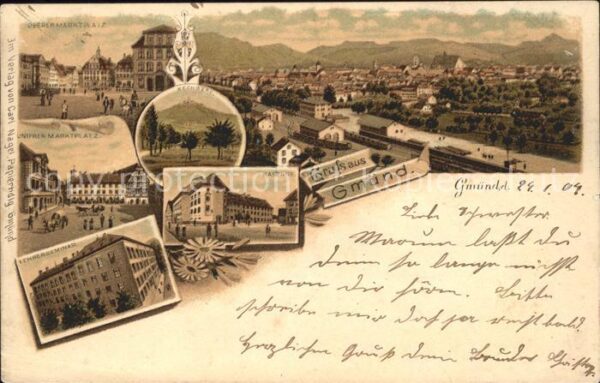 OBERER MARKTPLATZ.
RECHBERG.
UNTERER MARKTPLATZ.
LEHRERSEMINAR
Gruss aus
Gmünd.
Im Verlag von Carl Nagel Papierhdlg. Gmünd
Gmünd 29. 1. 04.
Liebe Schwester
Warum laßt du
denn so lange nichts
von dir hören. Bitte
schreibe mir doch ja recht bald.
Herzlichen Gruß dein Bruder